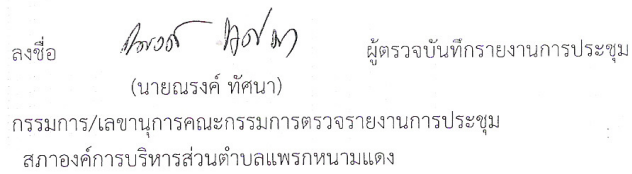 ลงชื่อ ณรงค์ ทัศนา ผู้ตรวจบันทึกรายงานการประชุม
(นายณรงค์ ทัศนา)
กรรมการ/เลขานุการคณะกรรมการตรวจรายงานการประชุม
สภาองค์การบริหารส่วนตำบลแพรกหนามแดง